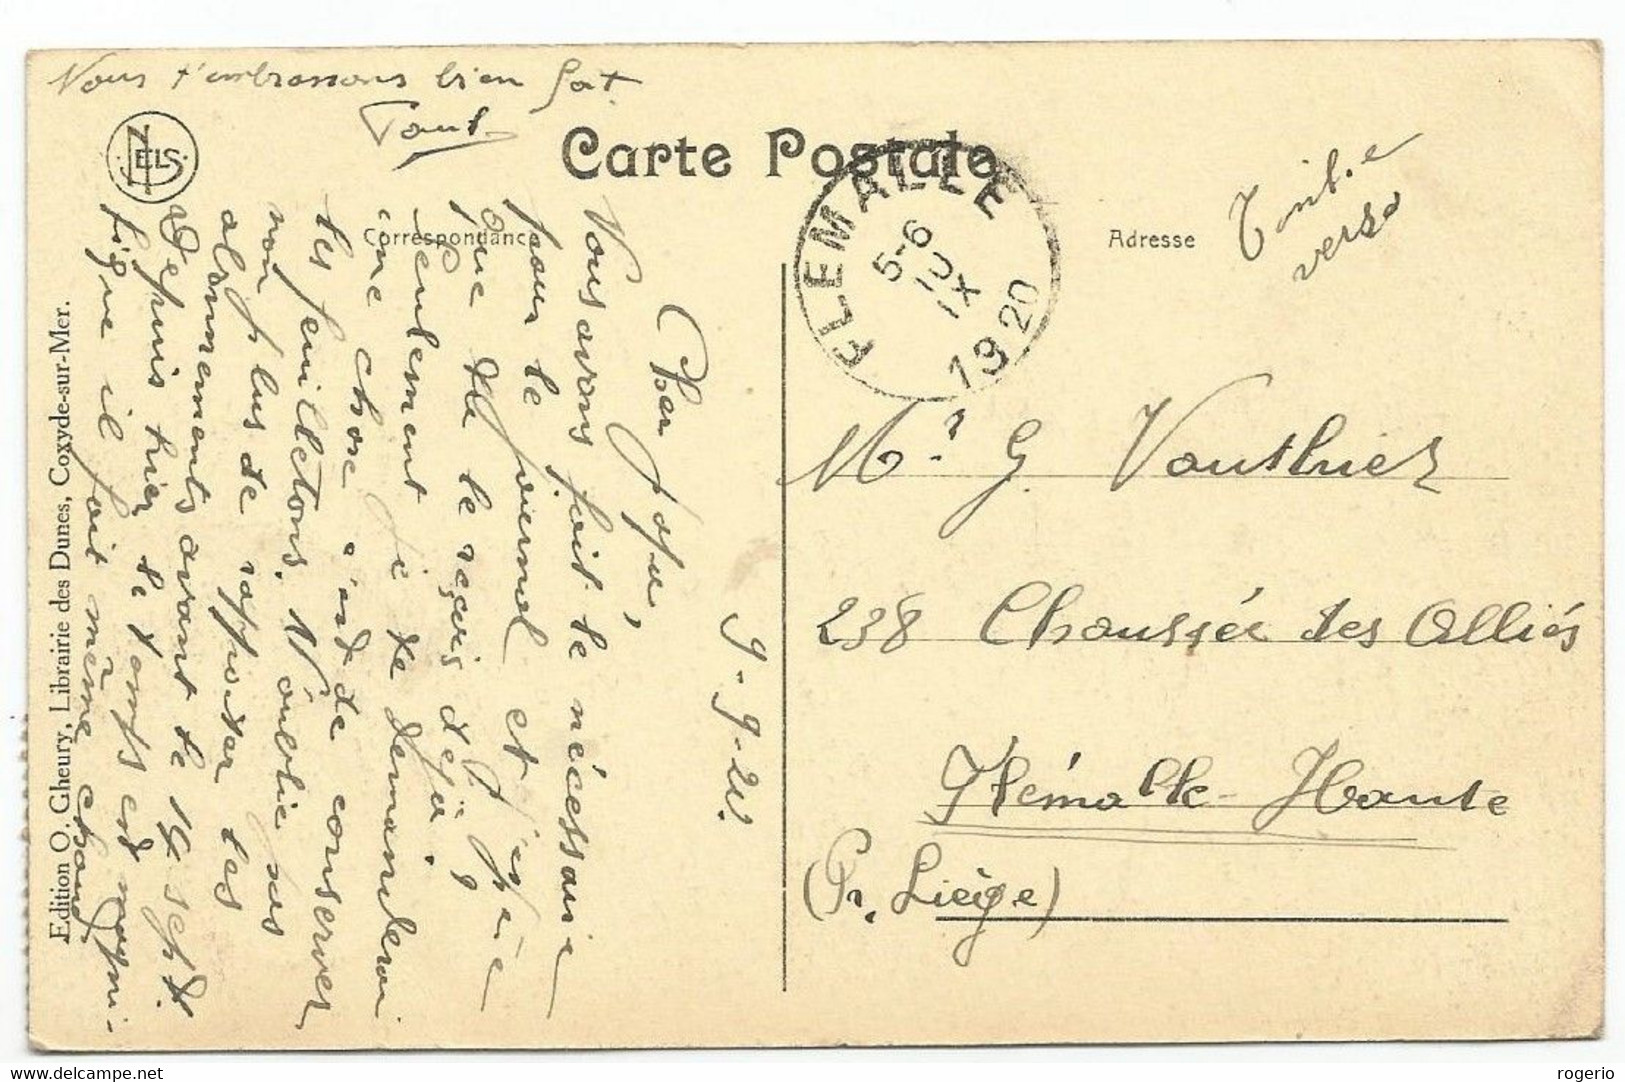 Nous t'embrassons bien fort.
Paul
NELS
Carte Postale
Correspondance
Adresse
Timb.e
verso
FLEMALLE
5-6
10
IX
1920
9-9-20.
Cher papa,
Vous avons fait le nécessaire
pour le journal et j'espère
que tu le reçois déjà.
Seulement je te demanderai
une chose c'est de conserver
les feuilletons. N'oublie pas
non plus de rapporter les
abonnements avant le 14 sept.
Depuis hier le temps est magni-
fique il fait même chaud
Mr. G. Vauthier
238 Chaussée des Alliés
Flémalle-Haute
(Pr. Liège)
Edition O. Gheury, Librairie des Dunes, Coxyde-sur-Mer.
delcampe.net
rogerio